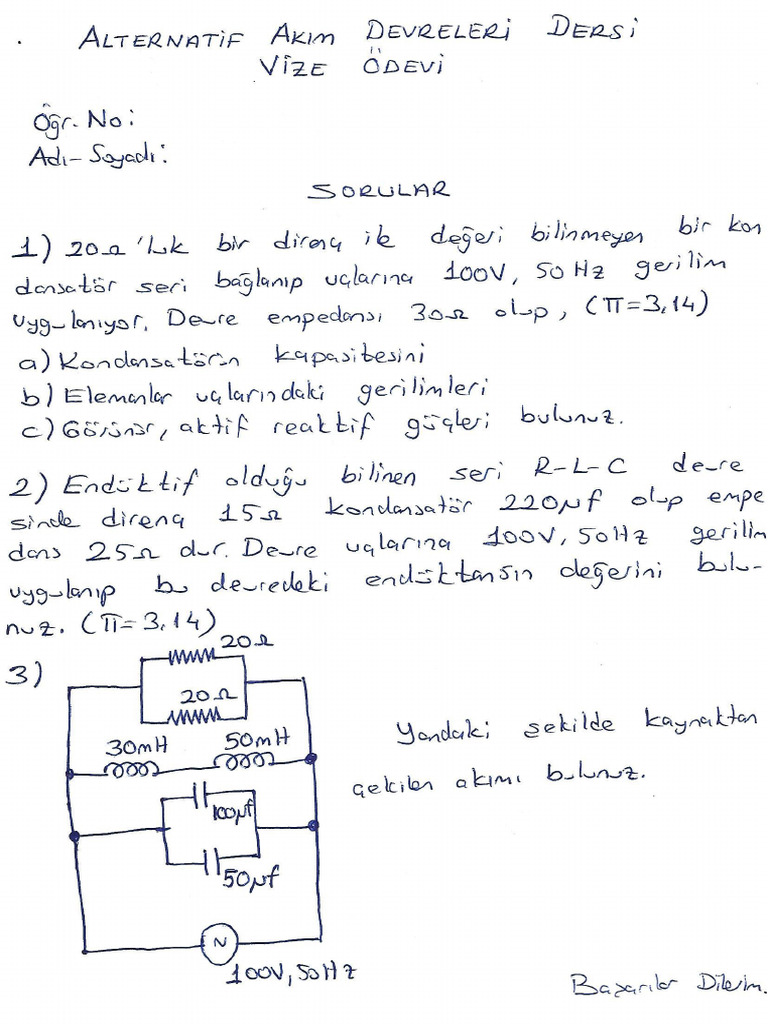 ALTERNATİF AKIM DEVRELERİ DERSİ
VİZE ÖDEVİ
Öğr. No:
Adı-Soyadı:
SORULAR
1) 20Ω'luk bir direnç ile değeri bilinmeyen bir kon
dansatör seri bağlanıp uçlarına 100V, 50 Hz gerilim
uygulanıyor. Devre empedansı 30Ω olup, (π=3,14)
a) Kondansatörün kapasitesini
b) Elemanlar uçlarındaki gerilimleri
c) Görünür, aktif reaktif güçleri bulunuz.
2) Endüktif olduğu bilinen seri R-L-C devre
sinde direnç 15Ω kondansatör 220µf olup empe
dans 25Ω dur. Devre uçlarına 100V, 50Hz gerilim
uygulanıp bu devredeki endüktansın değerini bulu-
nuz. (π=3,14)
3)
20Ω
20Ω
30mH
50mH
100µf
50µf
N
100V, 50Hz
Yandaki şekilde kaynaktan
çekilen akımı bulunuz.
Başarılar Dilerim.